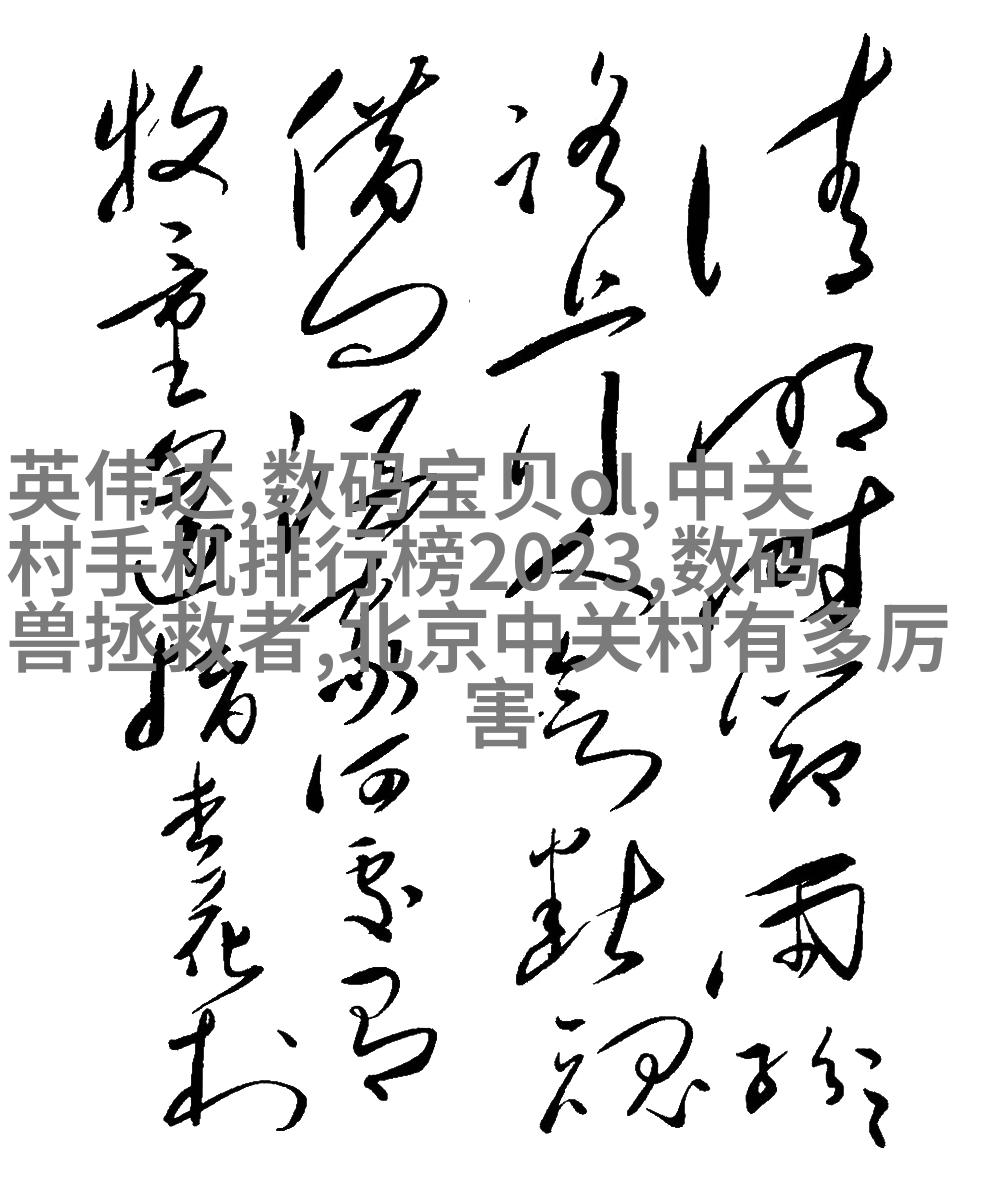 清明時節雨紛紛
路上行人欲斷魂
借問酒家何處有
牧童遙指杏花村
英伟达,数码宝贝ol,中关
村手机排行榜2023,数码
兽拯救者,北京中关村有多厉
害